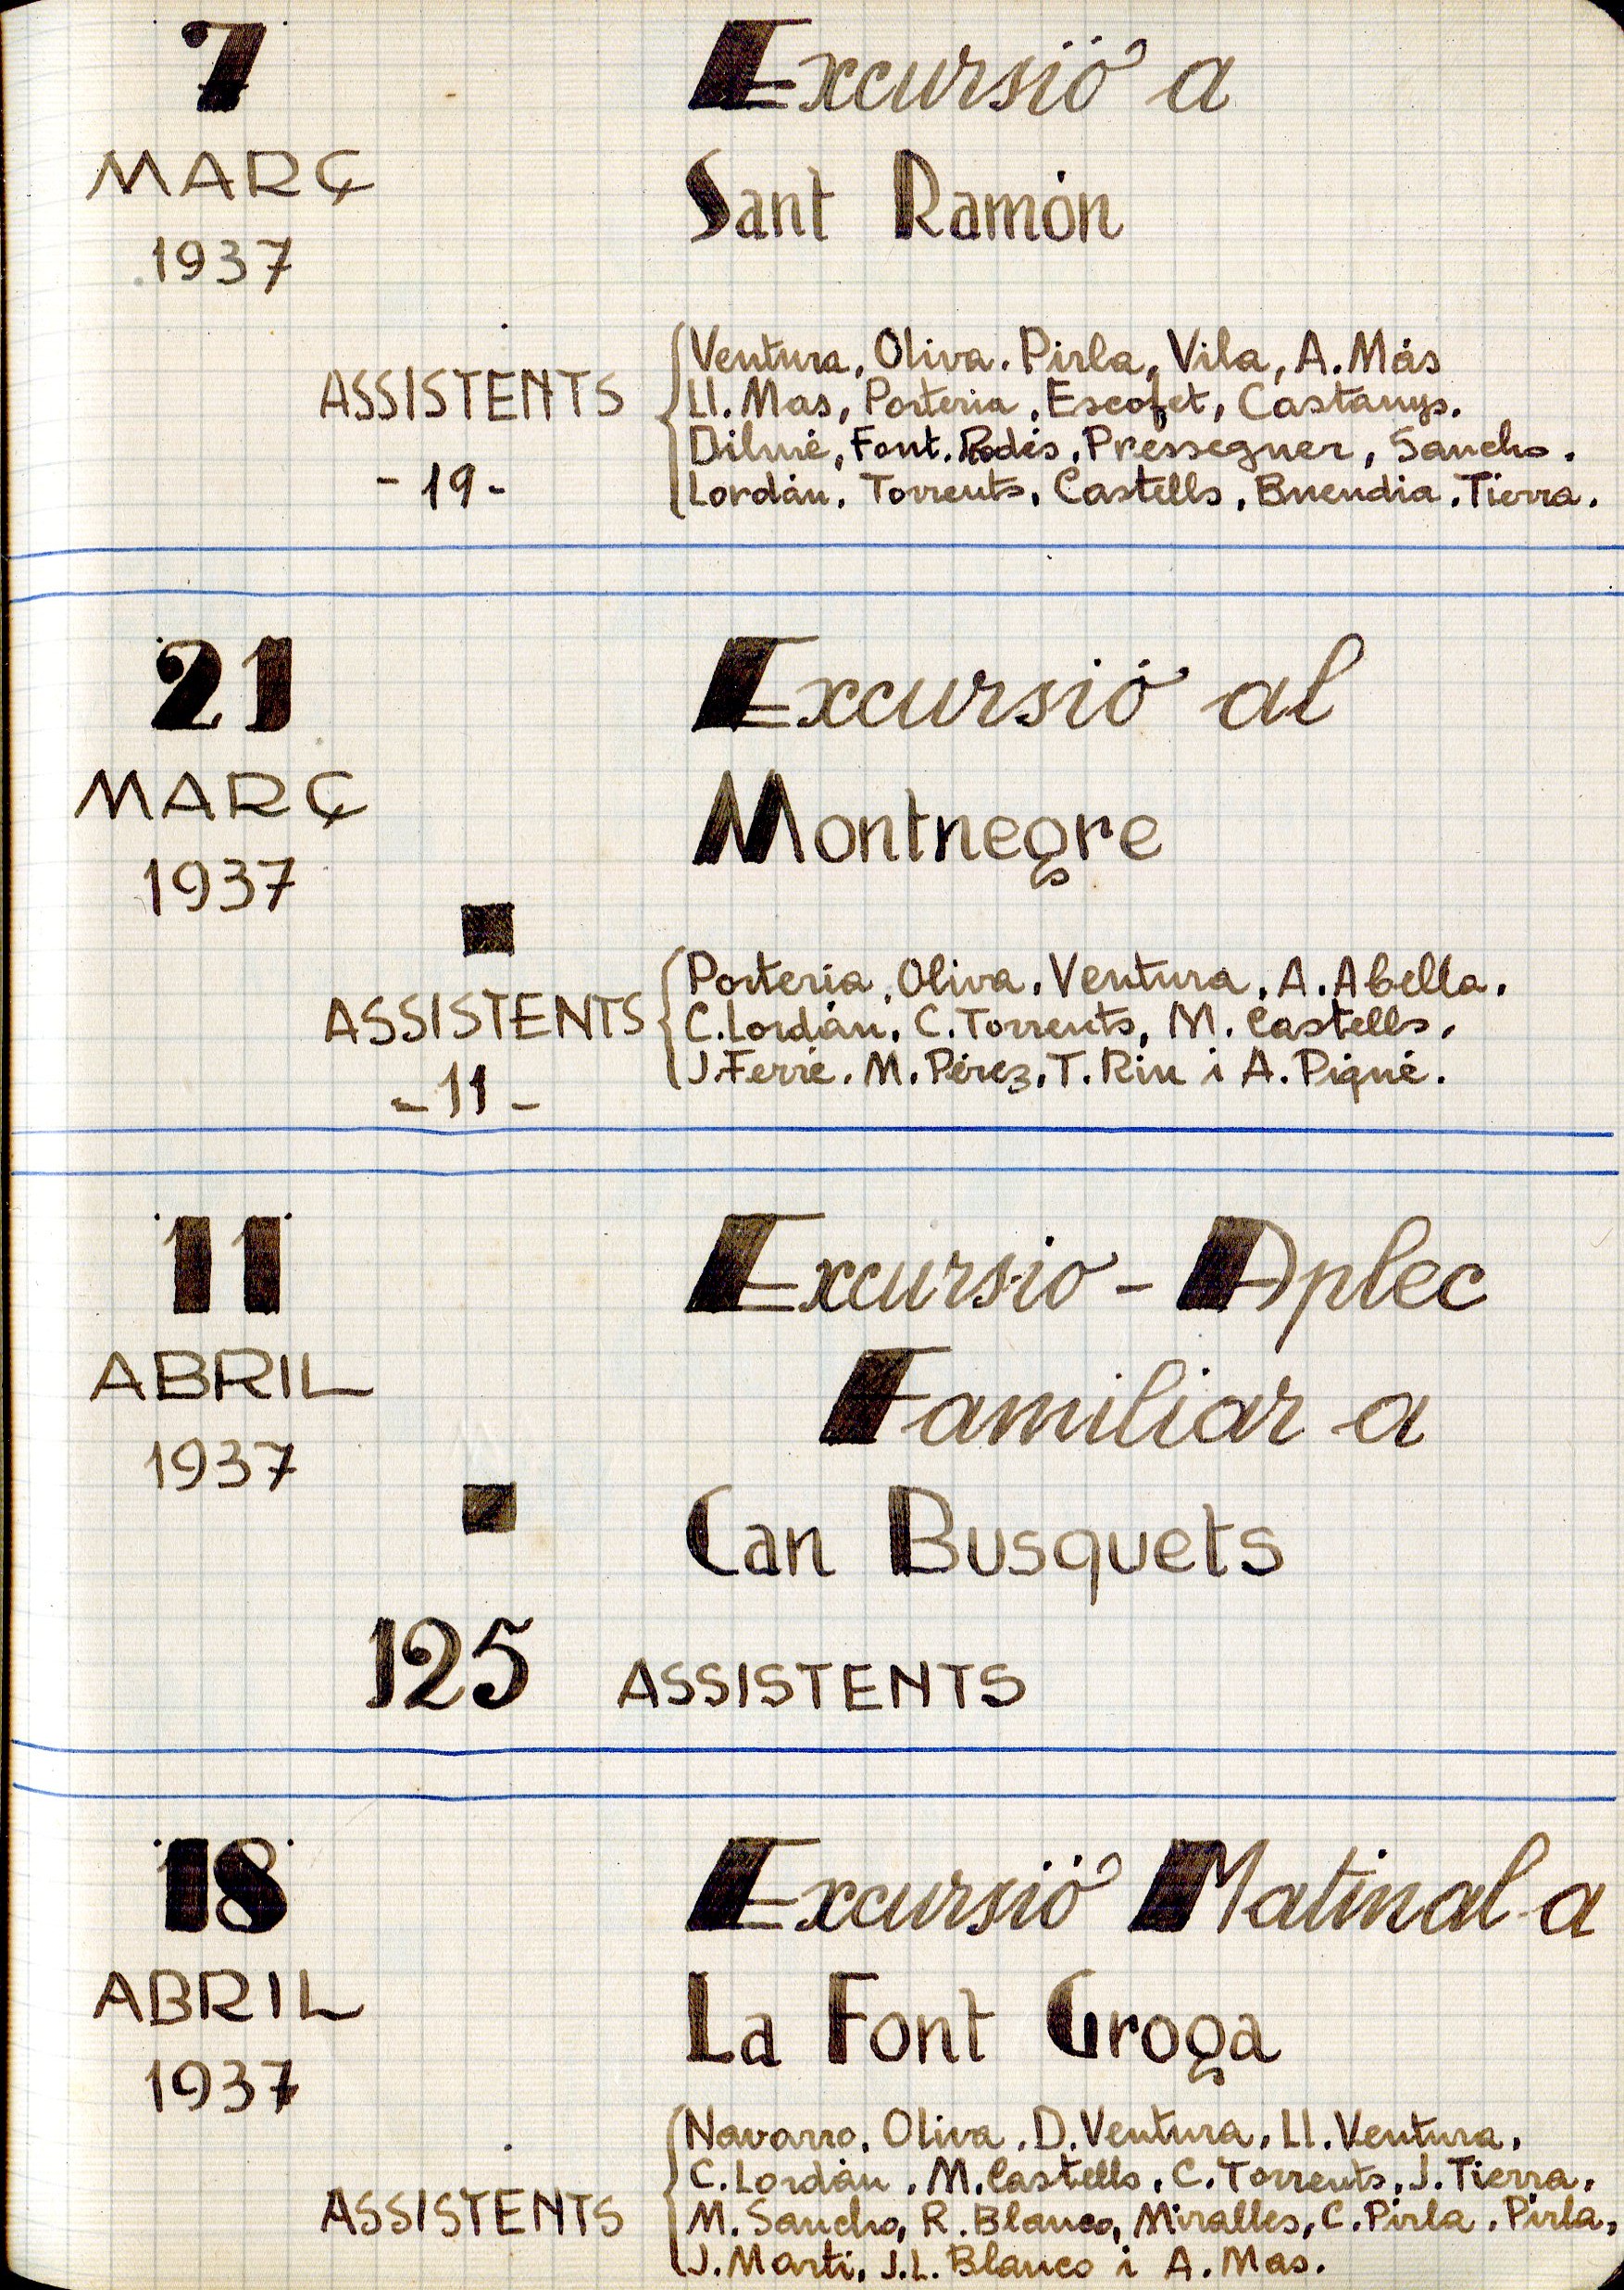 7
MARÇ
1937
Excursió a
Sant Ramón
ASSISTENTS
- 19 -
Ventura, Oliva. Pirla, Vila, A. Más
Ll. Mas, Porteria, Escofet, Castanys.
Dilmé, Font. Rodés, Pressegner, Sancho.
Lordán, Torrents, Castells, Buendia, Tierra.
21
MARÇ
1937
Excursió al
Montnegre
ASSISTENTS
- 11 -
Porteria, Oliva, Ventura, A. Abella,
C. Lordán, C. Torrents, M. Castells,
J. Ferré, M. Pérez, T. Riu i A. Piqué.
11
ABRIL
1937
Excursio - Aplec
Familiar a
Can Busquets
125 ASSISTENTS
18
ABRIL
1937
Excursió Matinal a
La Font Groga
ASSISTENTS
Navarro, Oliva, D. Ventura, Ll. Ventura,
C. Lordán, M. Castells, C. Torrents, J. Tierra,
M. Sancho, R. Blanco, Miralles, C. Pirla, Pirla,
J. Marti, J. L. Blanco i A. Mas.